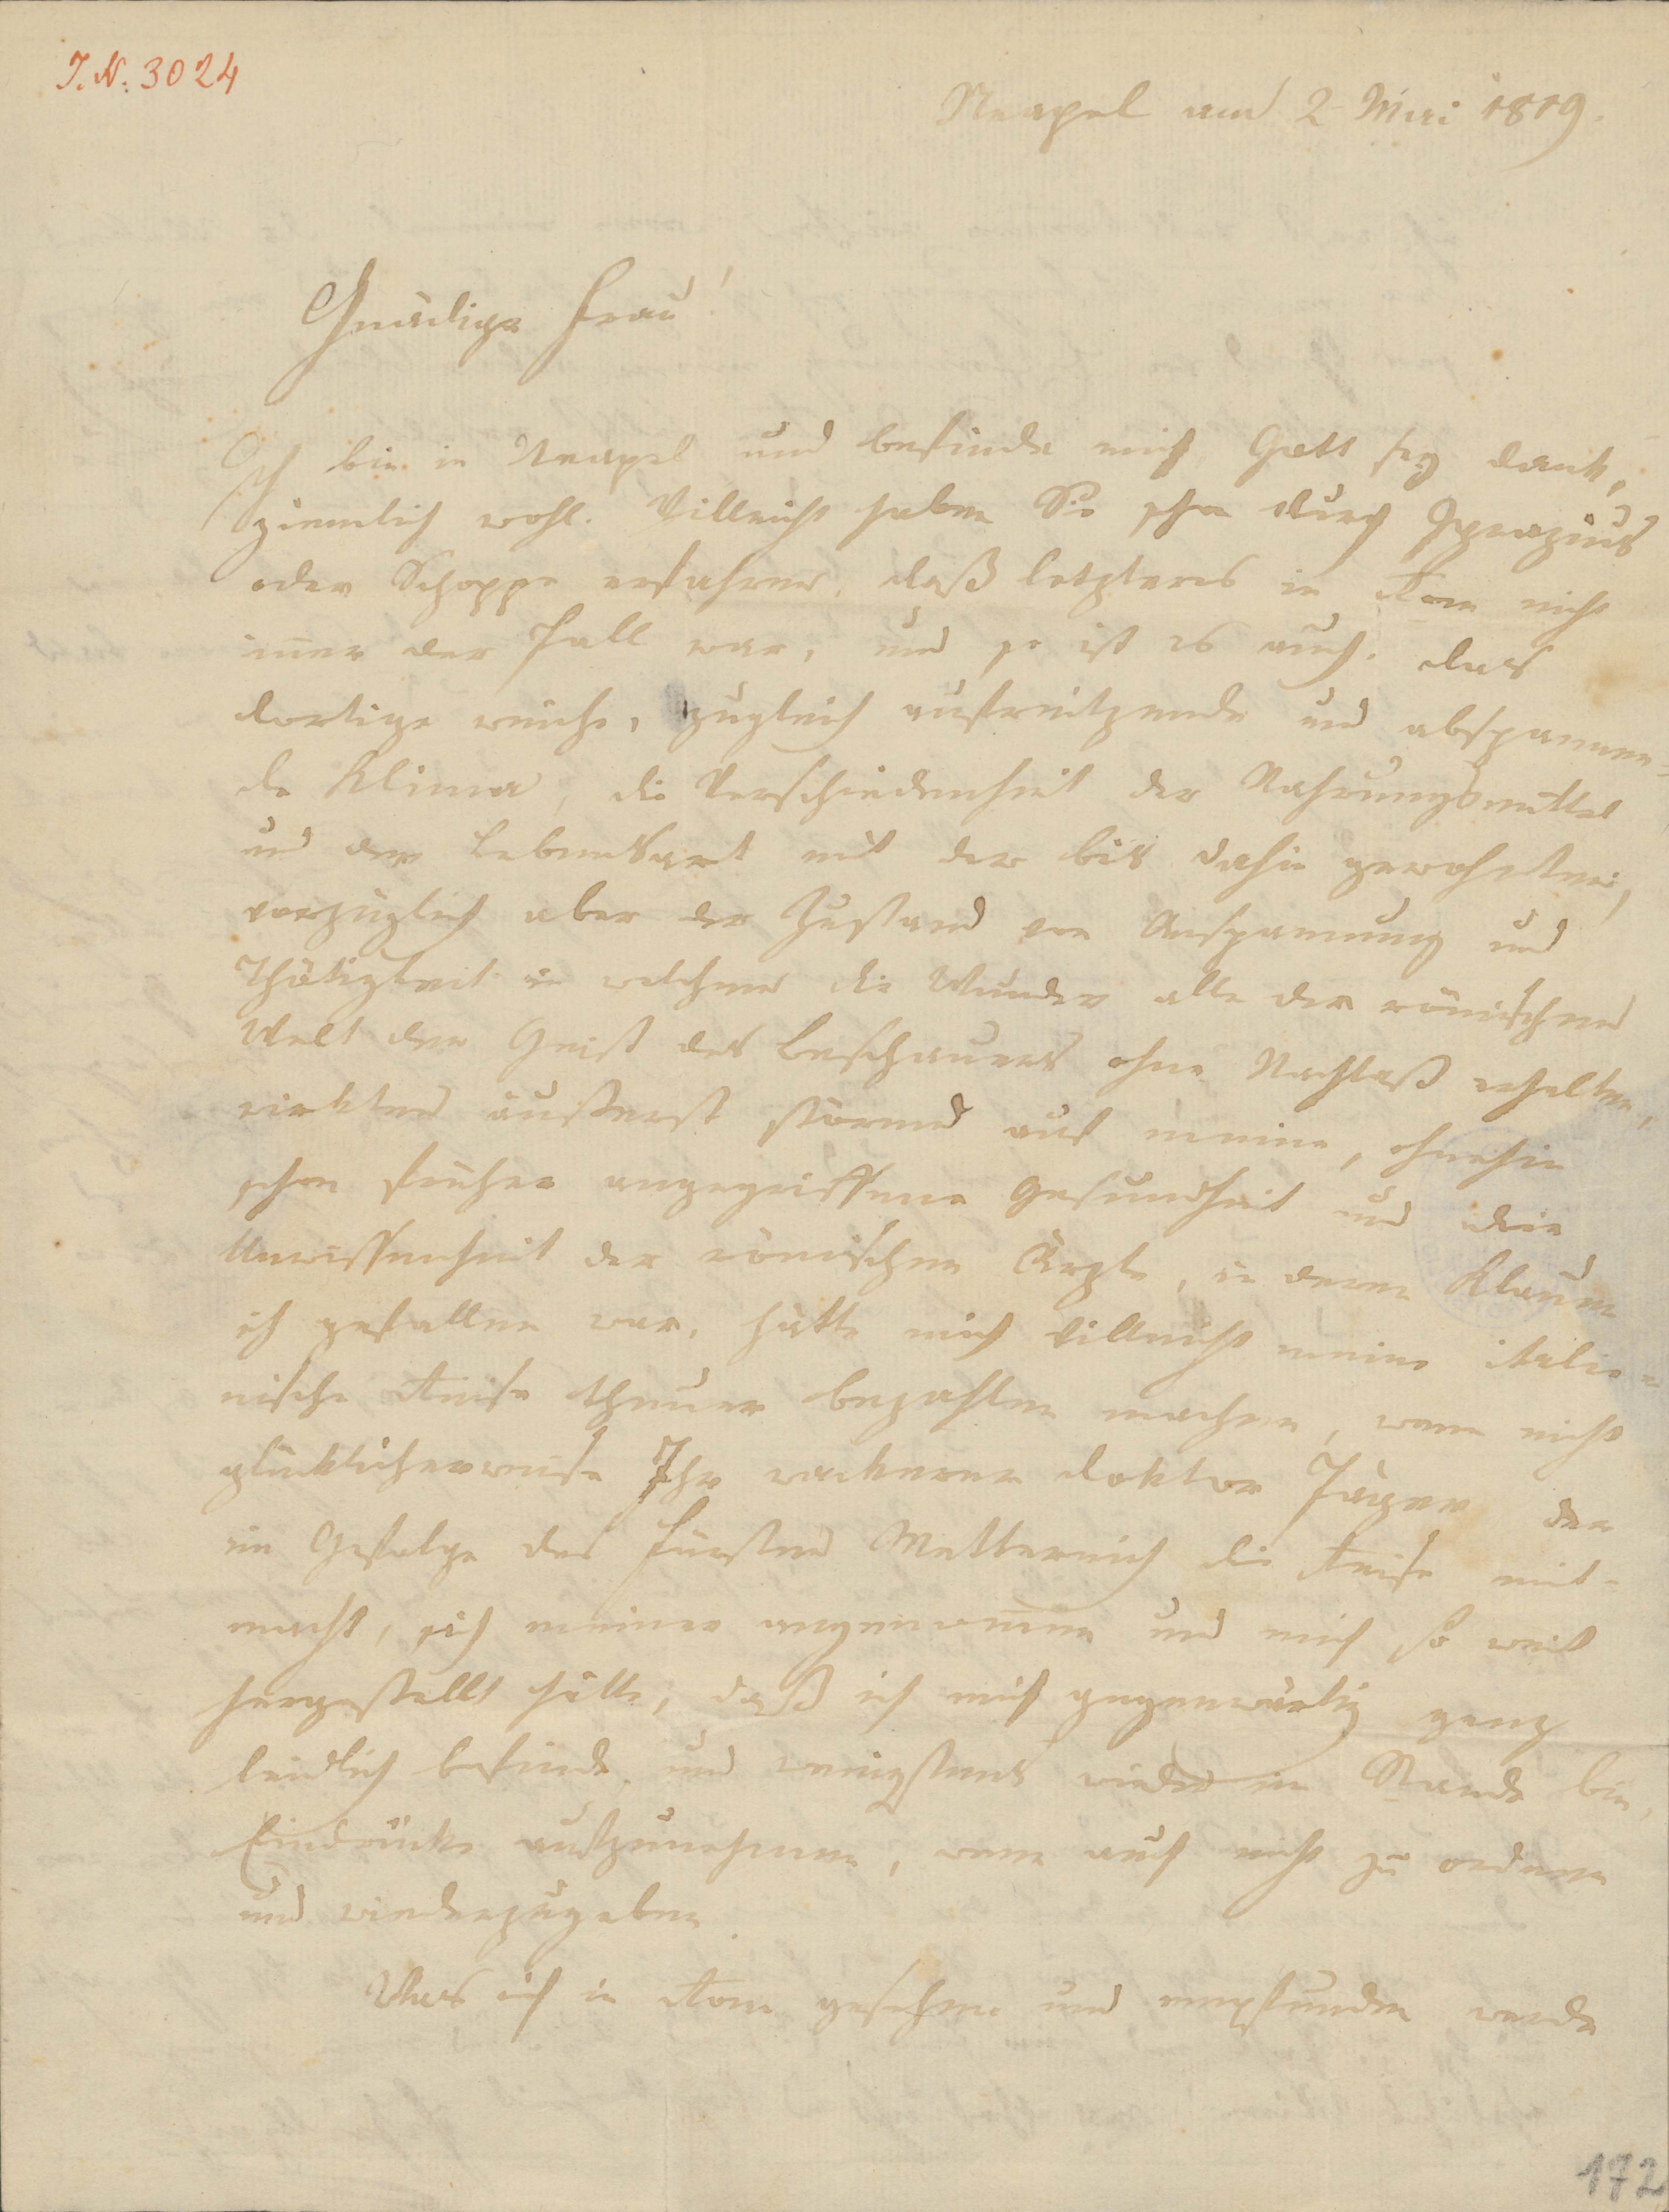 I. N. 3024
Neapel am 2 Mai 1819.
Gnädige Frau!
Ich bin in Neapel und befinde mich Gott sey dank,
ziemlich wohl. Villeicht haben Sie schon durch
oder Schoppe erfahren, daß letzteres in Rom nicht
immer der Fall war, und so ist es auch. Das
dortige weiche, zugleich aufreitzende und abspannen-
de Klima, die Verschiedenheit der Nahrungsmittel
und der Lebensart mit der bis dahin gewohnten,
vorzüglich aber der Zustand von Anspannung und
Thätigkeit in welchem die Wunder alle der römischen
Welt den Geist des Beschauers ohne Nachlaß erhalten,
wirkten äußerst störend auf meine, ohnehin
schon früher angegriffene Gesundheit und die
Unwissenheit der römischen Ärzte, in deren Klauen
ich gefallen war, hätte mich villeicht meine italie-
nische Reise theuer bezahlen machen, wenn nicht
glücklicherweise Ihr wackerer Doktor Jäger der
im Gefolge des Fürsten Metternich die Reise mit-
macht, sich meiner angenommen und mich so weit
hergestellt hätte, daß ich mich gegenwärtig ganz
leidlich befinde, und wenigstens wieder im Stande bin,
Eindrücke aufzunehmen, wenn auch nicht zu ordnen
und wiederzugeben.
Was ich in Rom gesehen und empfunden werde
172